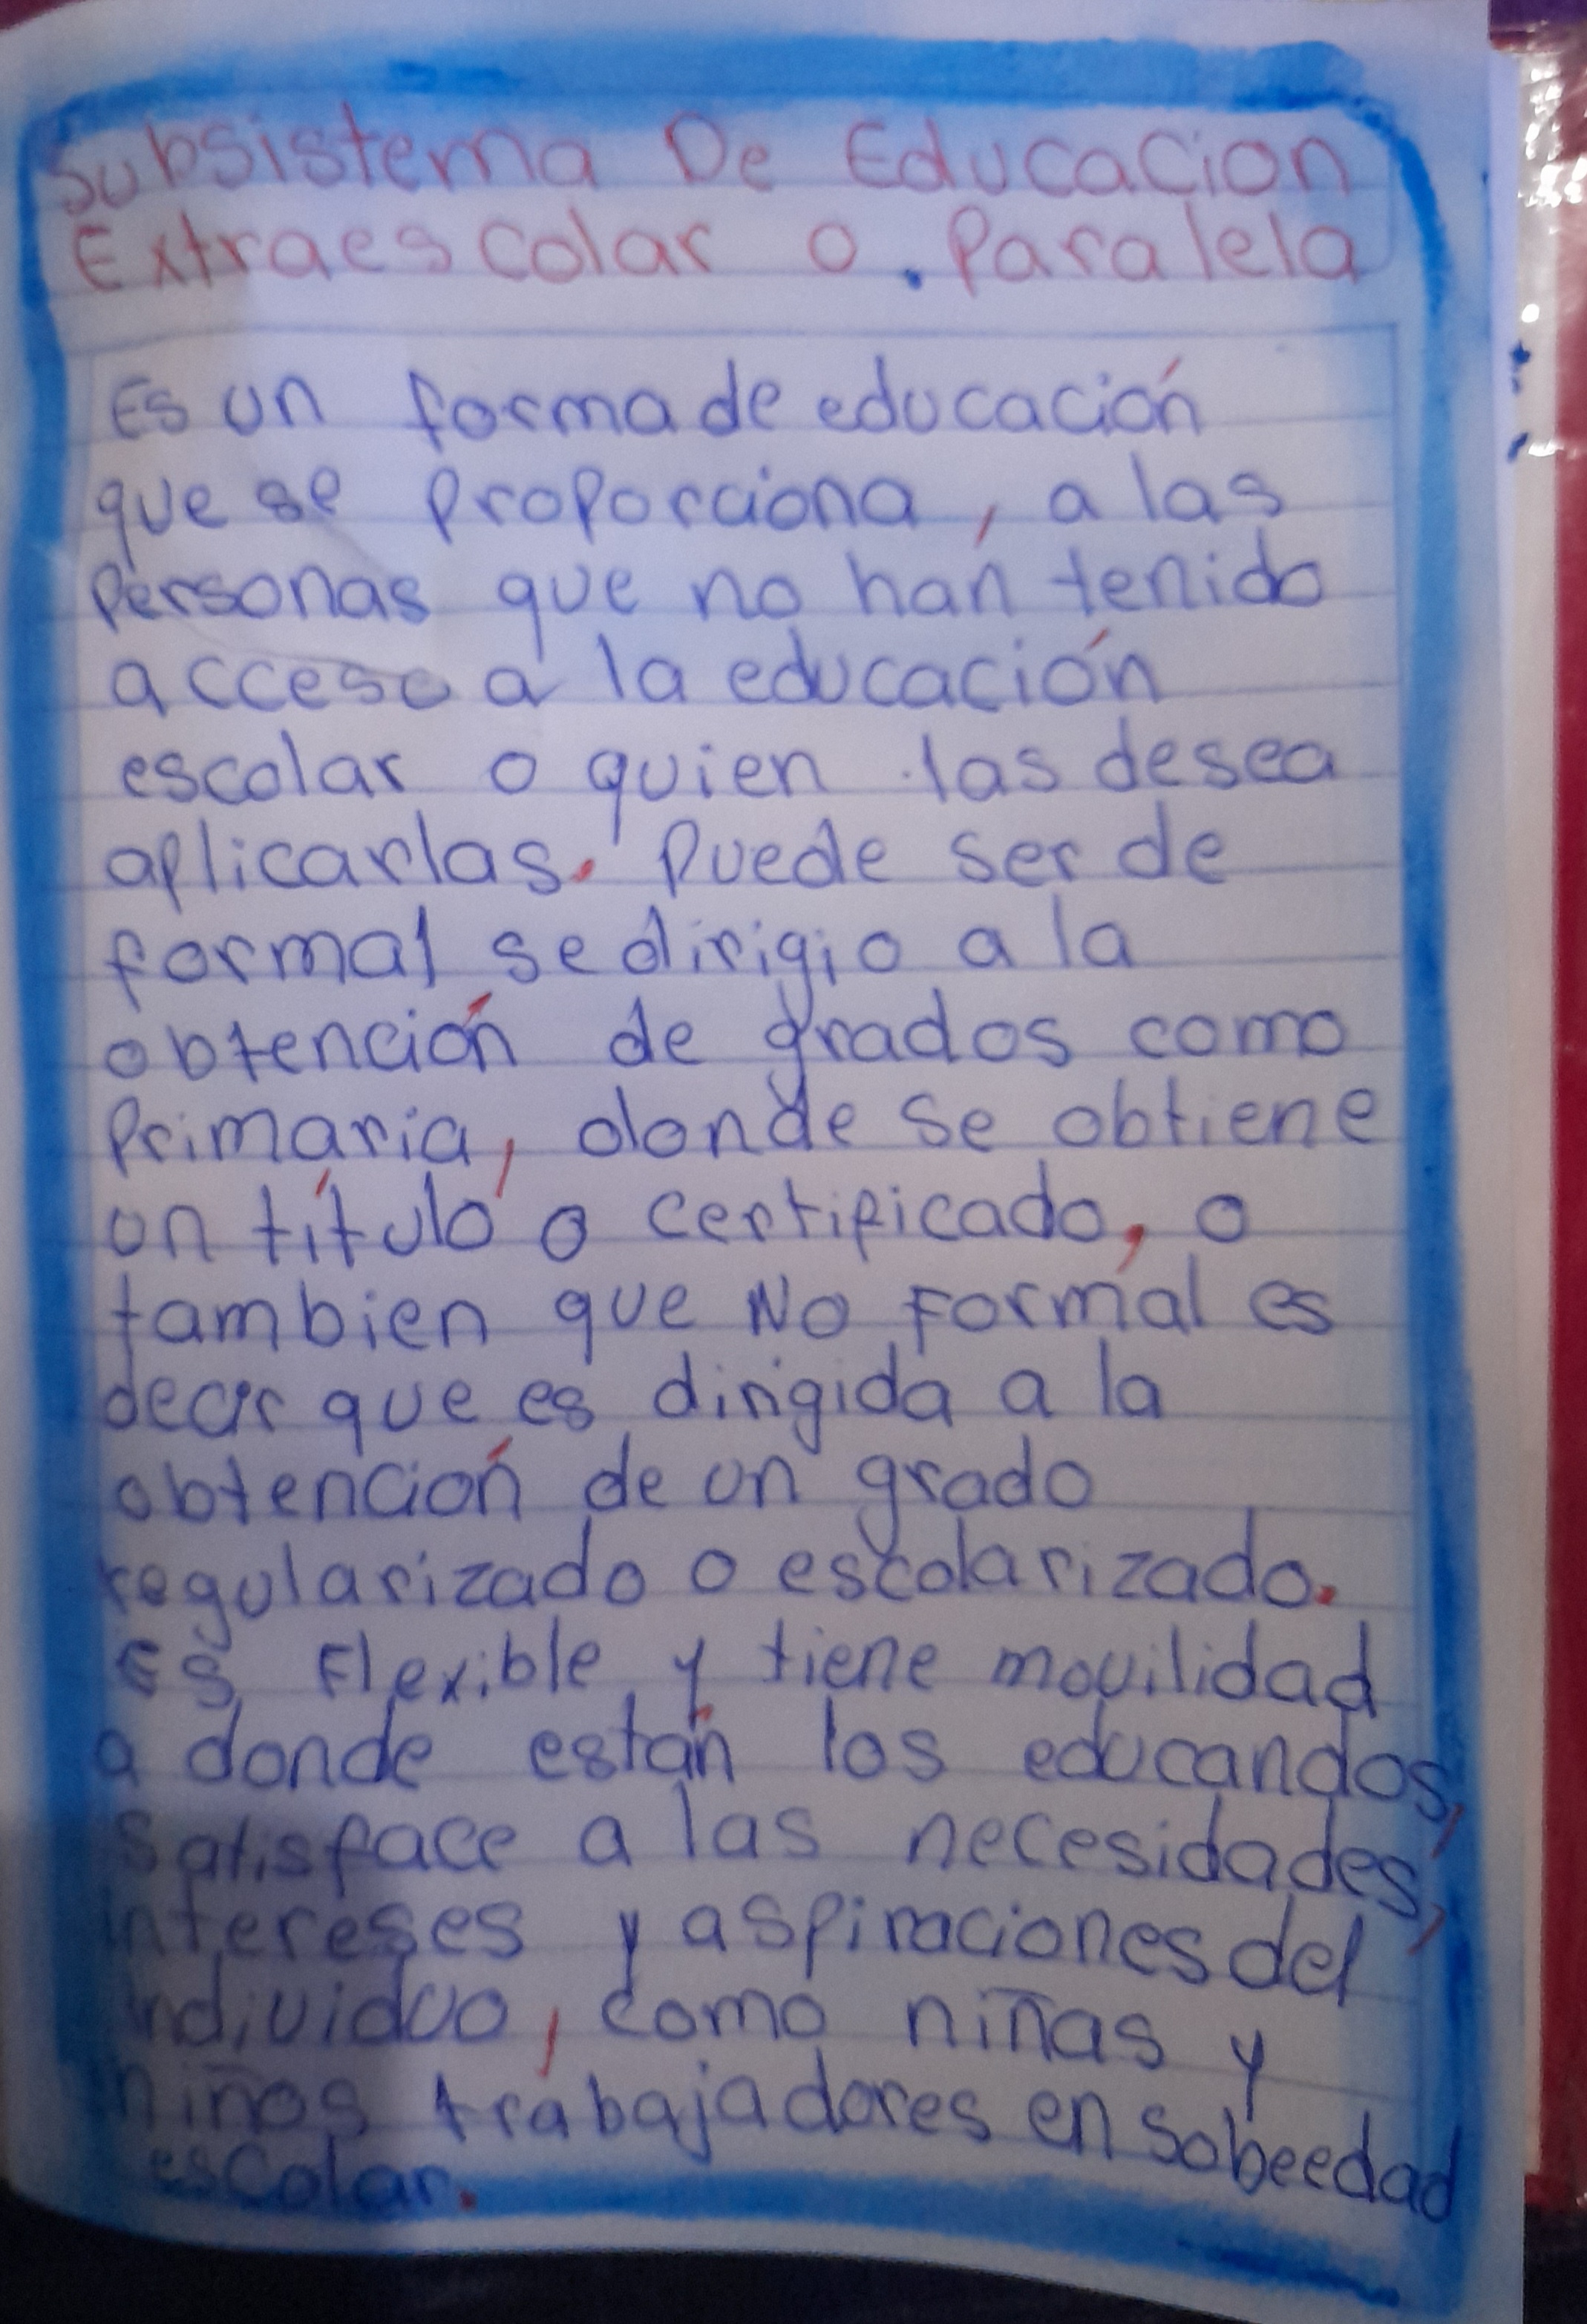 Subsistema De Educacion
Extraescolar o. Paralela
Es un forma de educación
que se proporciona, a las
Personas que no han tenido
acceso a la educación
escolar o quien las desea
aplicarlas. Puede ser de
formal se dirigio a la
obtención de grados como
Primaria, donde se obtiene
un título o certificado, o
tambien que No Formal es
decir que es dirigida a la
obtención de un grado
regularizado o escolarizado.
Es Flexible y tiene movilidad
a donde están los educandos,
satisface a las necesidades,
intereses y aspiraciones del
individuo, como niñas y
niños trabajadores en sobeedad
escolar.